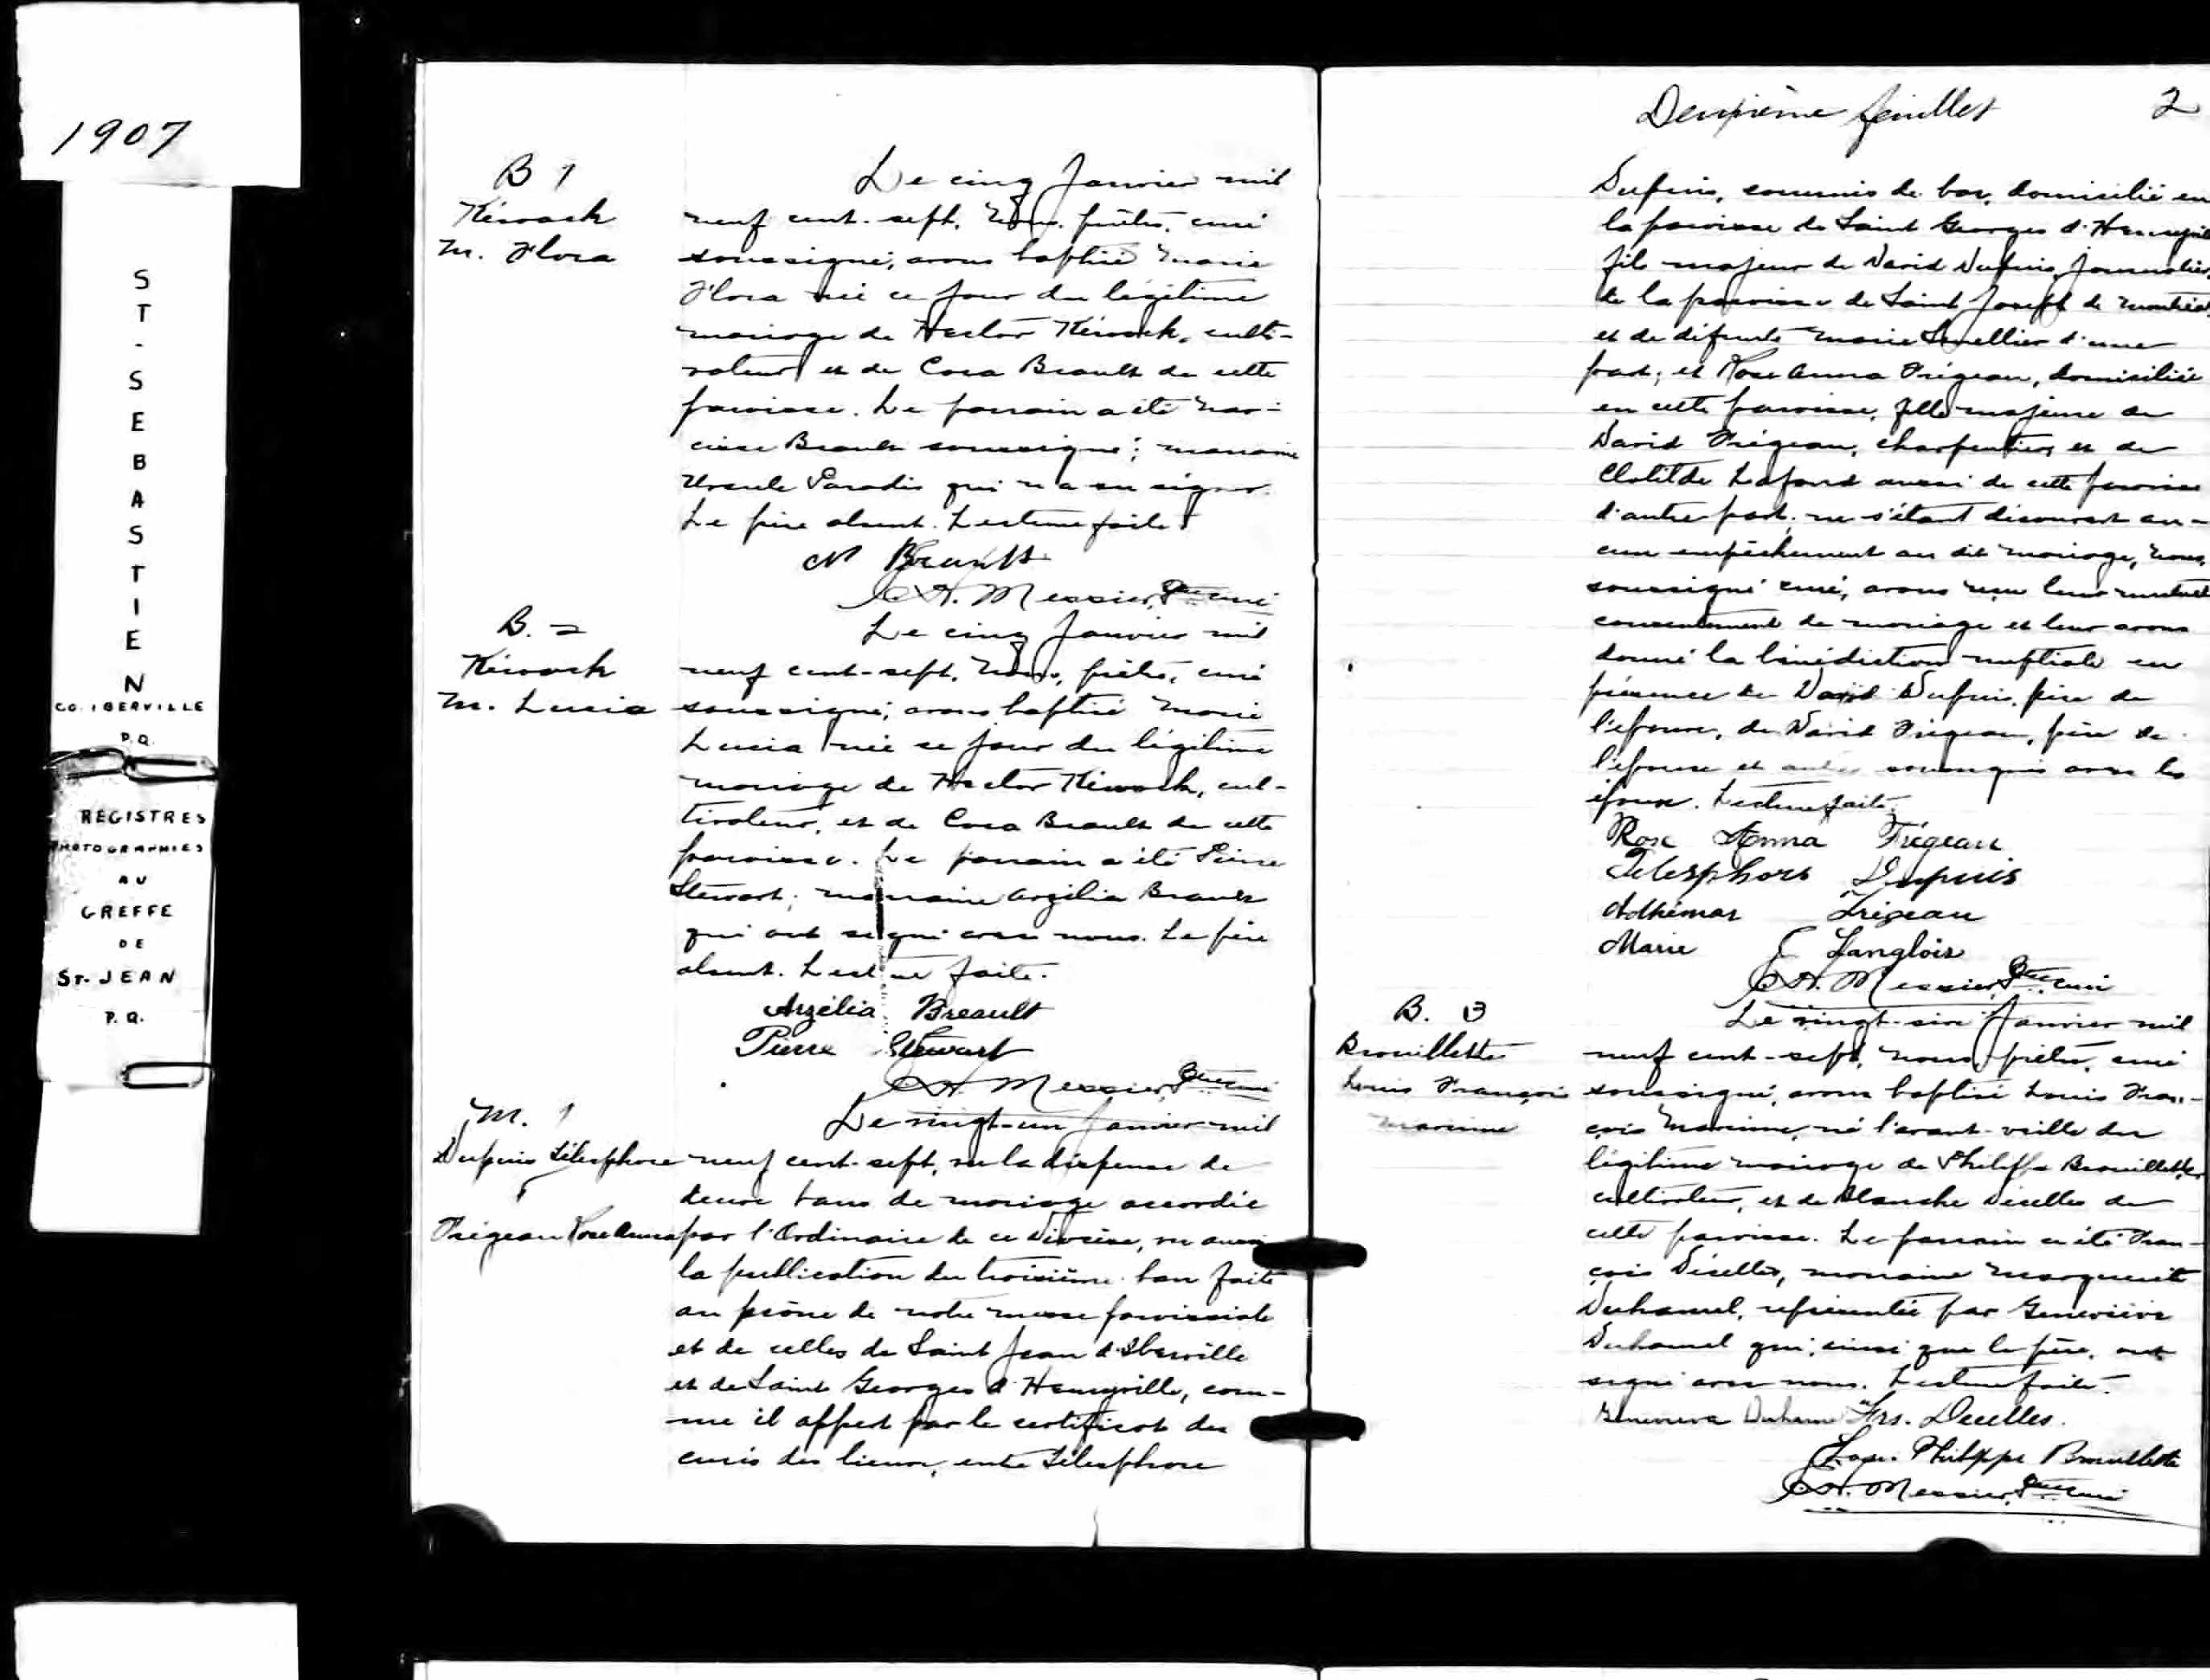 1907
ST-SEBASTIEN
CO. IBERVILLE
P.Q.
REGISTRES
PHOTOGRAPHIES
AU
GREFFE
DE
ST. JEAN
P.Q.
B 1
Kéroack
M. Flora
Le cinq Janvier mil
neuf cent-sept, nous, prêtre, curé
soussigné, avons baptisé Marie
Flora née ce jour du légitime
mariage de Hector Kéroack, culti-
vateur et de Cora Breault de cette
paroisse. Le parrain a été Nar-
cisse Breault soussigné; marraine
Ursule Paradis qui n'a su signer.
Le père absent. Lecture faite.
N Breault
A. Messier, Ptre curé
B. 2
Kéroack
M. Lucia
Le cinq Janvier mil
neuf cent-sept, nous, prêtre, curé
soussigné, avons baptisé Marie
Lucia née ce jour du légitime
mariage de Hector Kéroack, cul-
tivateur, et de Cora Breault de cette
paroisse. Le parrain a été Pierre
Stewart; marraine Arzélia Breault
qui ont signé avec nous. Le père
absent. Lecture faite.
Arzélia Breault
Pierre Stewart
A. Messier, Ptre curé
M. 1
Dupuis Télesphore
&
Trégeau Rose Anna
Le vingt-un Janvier mil
neuf cent-sept, vu la dispense de
deux bans de mariage accordée
par l'Ordinaire de ce diocèse, vu aussi
la publication du troisième ban faite
au prône de notre messe paroissiale
et de celles de Saint Jean d'Iberville
et de Saint Georges d'Henryville, com-
me il appert par le certificat des
curés des lieux, entre Télesphore
Deuxième feuillet 2
Dupuis, commis de bar, domicilié en
la paroisse de Saint Georges d'Henryville
fils majeur de David Dupuis, journalier,
de la paroisse de Saint Joseph de Montréal,
et de défunte Marie d'une
part; et Rose Anna Trégeau, domiciliée
en cette paroisse, fille majeure de
David Trégeau, charpentier et de
Clotilde Lafond aussi de cette paroisse
d'autre part; ne s'étant découvert au-
cun empêchement au dit mariage, nous,
soussigné curé, avons reçu leur mutuel
consentement de mariage et leur avons
donné la bénédiction nuptiale en
présence de David Dupuis, père de
l'époux, de David Trégeau, père de
l'épouse et soussignés avec les
époux. Lecture faite.
Rose Anna Trégeau
Telesphore Dupuis
Adhémar Trégeau
Marie E Langlois
A. Messier, Ptre curé
B. 3
Brouillette
Louis François
Maxime
Le vingt-six Janvier mil
neuf cent-sept, nous, prêtre, curé
soussigné, avons baptisé Louis Fran-
çois Maxime, né l'avant-veille du
légitime mariage de Philippe Brouillette,
cultivateur, et de Blanche Décelles de
cette paroisse. Le parrain a été Fran-
çois Décelles, marraine Marguerite
Duhamel, représentée par Geneviève
Duhamel qui, ainsi que le père, ont
signé avec nous. Lecture faite.
Frs. Decelles.
Philippe Brouillette
A. Messier, Ptre curé